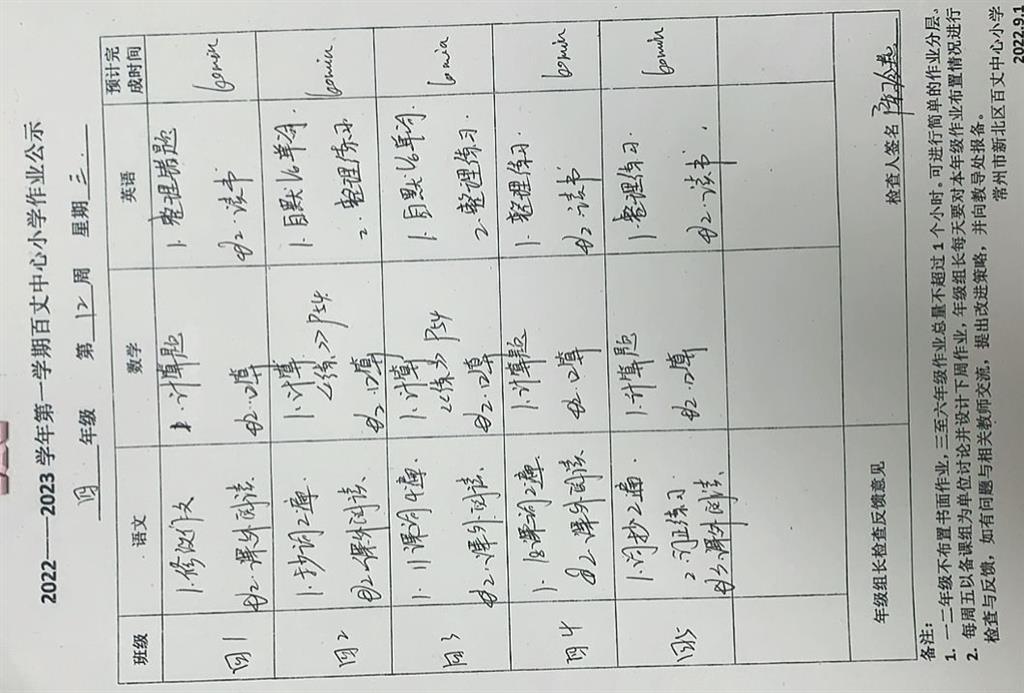 2022——2023 学年第一学期百丈中心小学作业公示
四 年级 第 12 周 星期 三
班级 语文 数学 英语 预计完成时间
四1 1.修改作文 1.计算题 1.整理错题 60min
2.课外阅读. 2.口算 2.读书
四2 1.抄词2遍. 1.计算 1.自默U6单词. 60min
2.课外阅读. <练>>P54. 2.整理练习
2.口算
四3 1.11课词4遍. 1.计算 1.自默U6单词 60min
2.课外阅读. <<练>>P54 2.整理练习.
2.口算
四4 1.18课词2遍 1.计算题 1.整理练习. 60min
2.课外阅读 2.口算 2.读书
四5 1.词抄2遍. 1.计算题 1.整理练习. 60min
2.订正练习 2.口算 2.读书.
3.课外阅读.
年级组长检查反馈意见 检查人签名
备注:
1. 一二年级不布置书面作业，三至六年级作业总量不超过 1 个小时。可进行简单的作业分层。
2. 每周五以备课组为单位讨论并设计下周作业，年级组长每天要对本年级作业布置情况进行
检查与反馈，如有问题与相关教师交流，提出改进策略，并向教导处报备。
常州市新北区百丈中心小学
2022.9.1